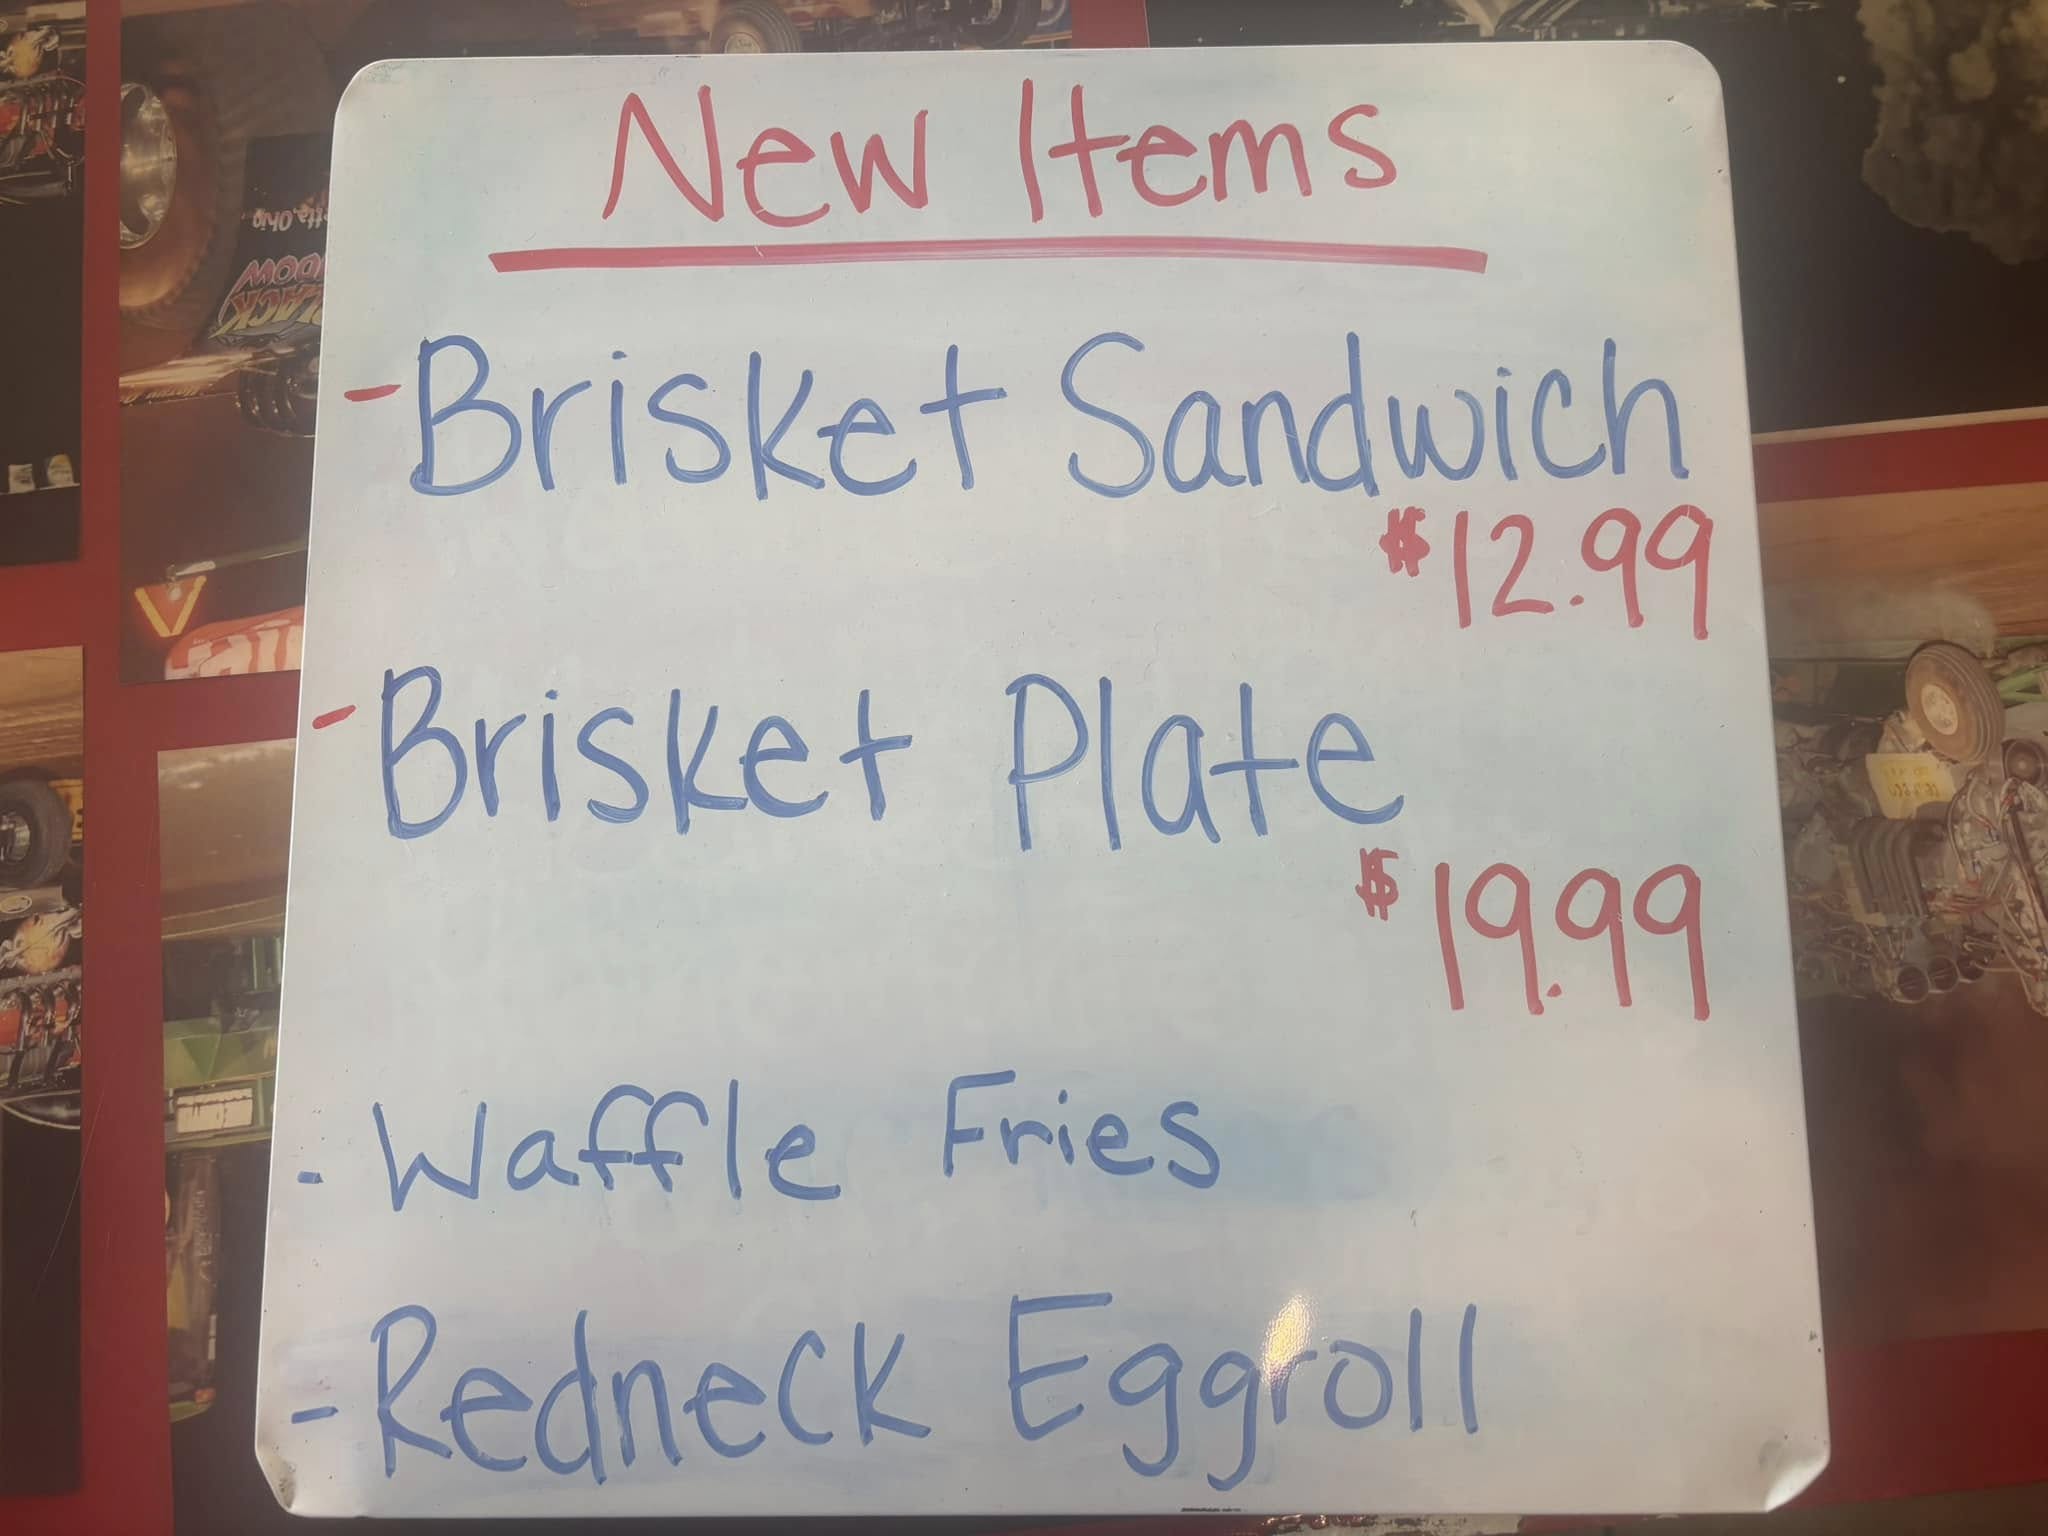 New Items
- Brisket Sandwich
$12.99
- Brisket Plate
$19.99
- Waffle Fries
- Redneck Eggroll